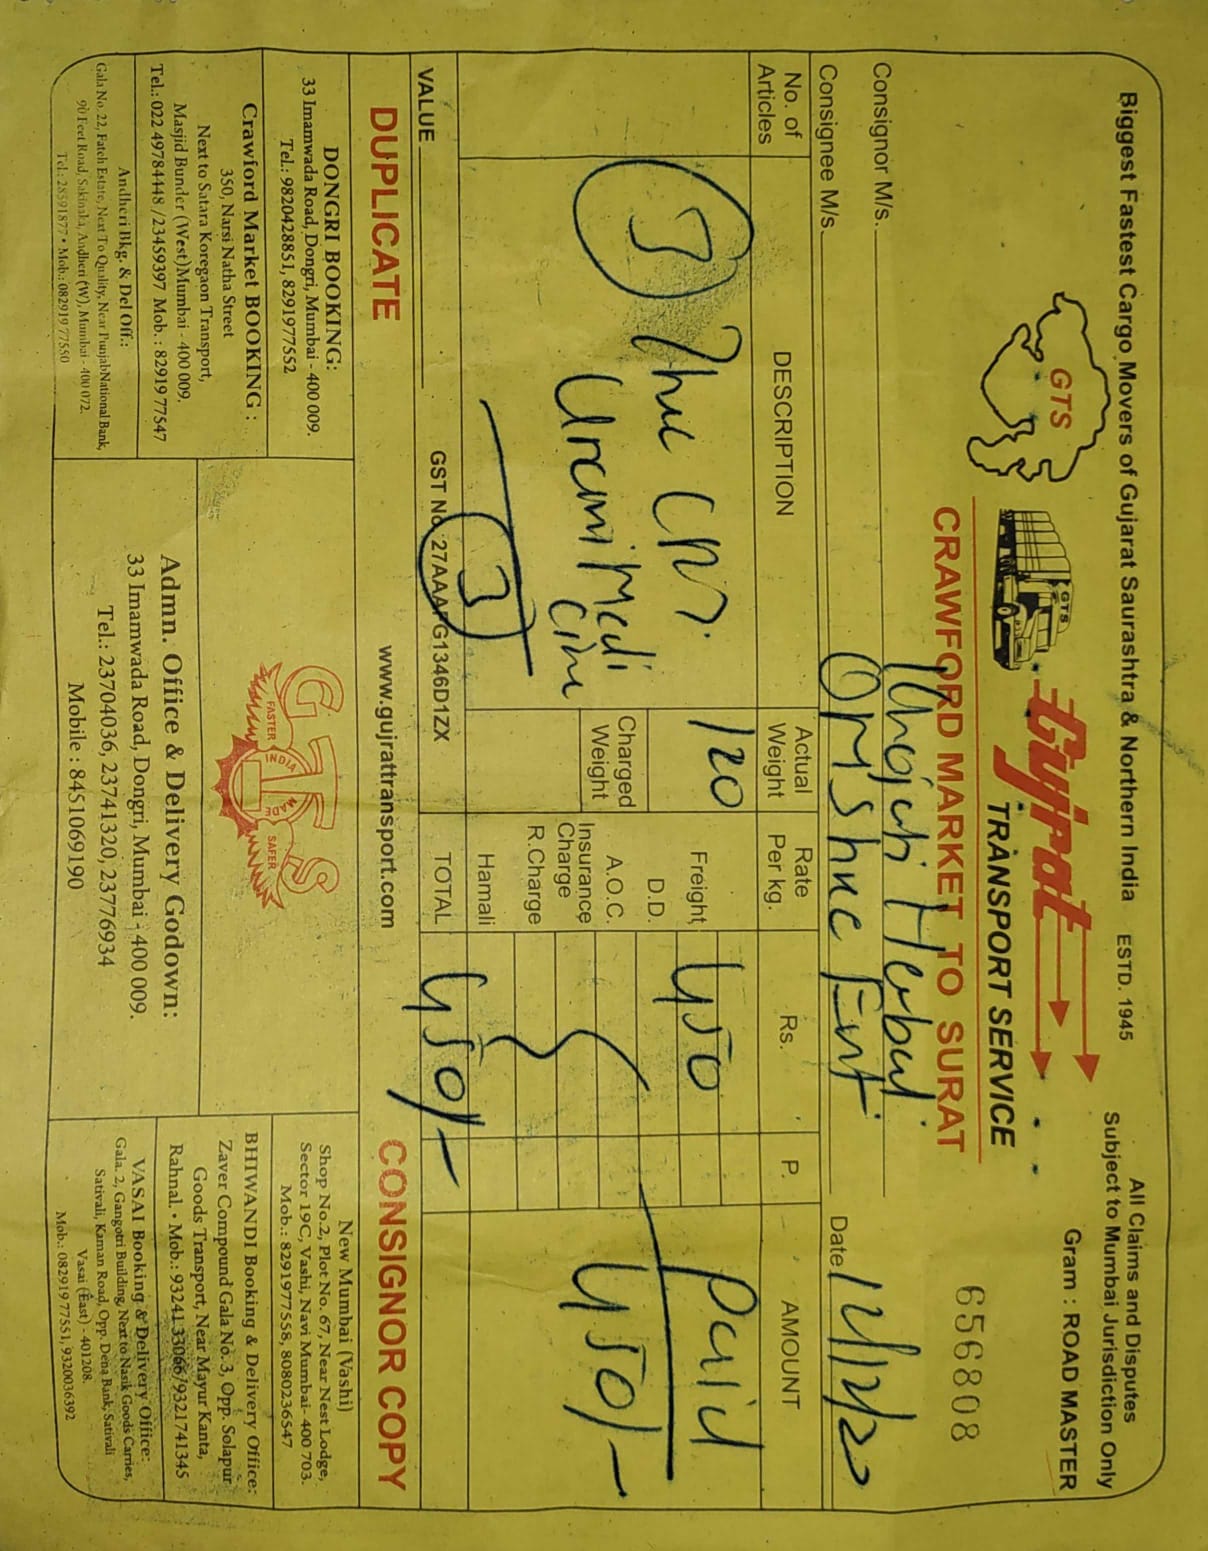 Biggest Fastest Cargo Movers of Gujarat Saurashtra & Northern India ESTD. 1945
All Claims and Disputes
Subject to Mumbai Jurisdiction Only
Gram : ROAD MASTER
GTS
GTS
Gujrat
TRANSPORT SERVICE
CRAWFORD MARKET TO SURAT
656808
Consignor M/s. Herbal
Consignee M/s. Om Shree Ent. Date 12/12/2
No. of Articles DESCRIPTION Actual Weight Rate Per kg. Rs. P. AMOUNT
3 120 Freight 450 Paid
D.D.
Charged Weight A.O.C. 450/-
Insurance Charge
R.Charge
3 Hamali
VALUE GST No. 27AAAFG1346D1ZX TOTAL 450/-
DUPLICATE www.gujrattransport.com CONSIGNOR COPY
DONGRI BOOKING:
33 Imamwada Road, Dongri, Mumbai - 400 009.
Tel.: 9820428851, 8291977552
Crawford Market BOOKING :
350, Narsi Natha Street
Next to Satara Koregaon Transport,
Masjid Bunder (West)Mumbai - 400 009.
Tel.: 022 49784448 /23459397 Mob. : 82919 77547
Andheri Bkg. & Del Off.:
Gala No. 22, Fateh Estate, Next To Quality, Near Punjab National Bank,
90 Feet Road, Sakinaka, Andheri (W), Mumbai - 400 072.
Tel.: 28591877 • Mob.: 082919 77550
GTS
FASTER INDIA MADE SAFER
Admn. Office & Delivery Godown:
33 Imamwada Road, Dongri, Mumbai - 400 009.
Tel.: 23704036, 23741320, 23776934
Mobile : 8451069190
New Mumbai (Vashi)
Shop No.2, Plot No. 67, Near Nest Lodge,
Sector 19C, Vashi, Navi Mumbai- 400 703.
Mob.: 8291977558, 8080236547
BHIWANDI Booking & Delivery Office:
Zaver Compound Gala No. 3, Opp. Solapur
Goods Transport, Near Mayur Kanta,
Rahnal. • Mob.: 93241 33066/9321741345
VASAI Booking & Delivery Office:
Gala. 2, Gangotri Building, Next to Nasik Goods Carries,
Sativali, Kaman Road, Opp. Dena Bank, Sativali
Vasai (East) - 401208.
Mob.: 082919 77551, 9320036392